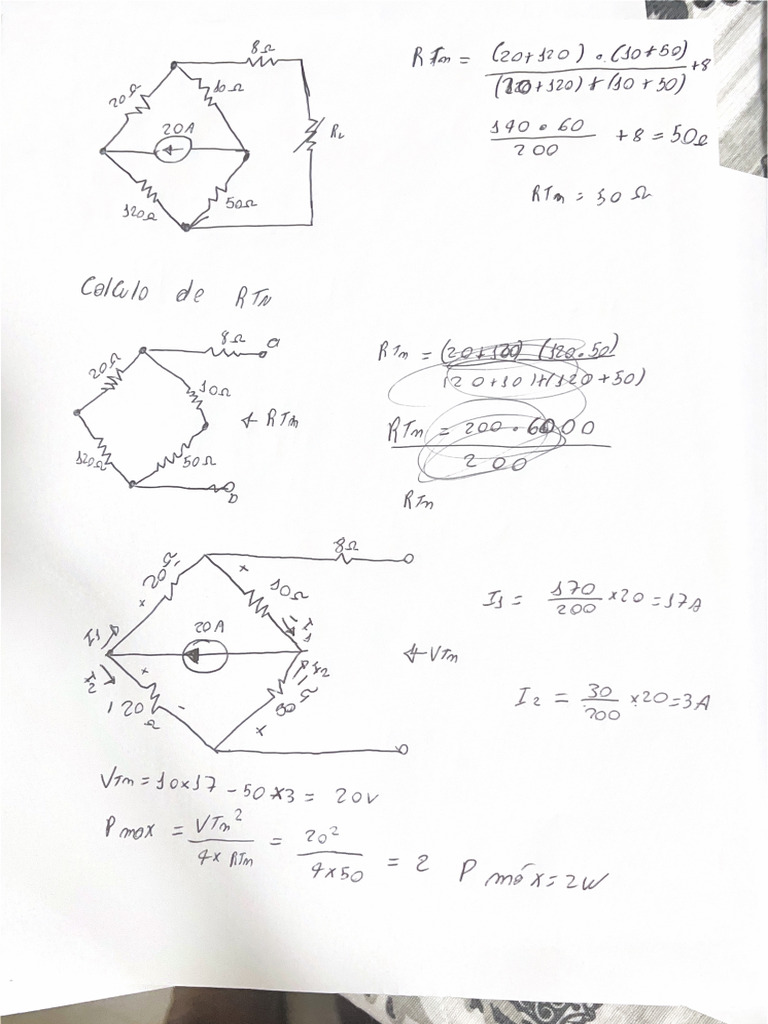 8Ω
20Ω
10Ω
20A
RL
120Ω
50Ω
RTm = (20+120) . (10+50) +8
(120+120) + (10 + 50)
140 . 60 + 8 = 50Ω
200
RTm = 50 Ω
Calculo de RTN
8Ω a
20Ω
10Ω
← RTm
120Ω
50Ω
b
RTm = (20+120) (120.50)
(20+10)+(120+50)
RTm = 200 . 6000
200
RTm
8Ω
20Ω
+ -
+ 10Ω -
I1
I1
20A
I2
I2
← VTm
+ 120Ω -
50
+
I1 = 170 × 20 = 17A
200
I2 = 30 × 20 = 3A
200
VTm = 10x17 - 50 x3 = 20v
P max = VTm² = 20² = 2
4x RTm 4x50
P máx = 2W